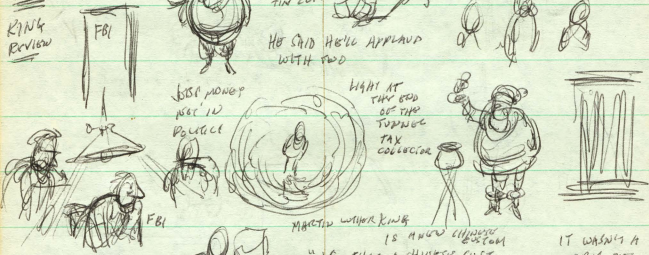 KING
REVIEW
FBI
TIN CUP
HE SAID HE'LL APPLAUD
WITH TWO
MONEY
NOT IN
POLITICS
LIGHT AT
THE END
OF THE
TUNNEL
TAX
COLLECTOR
FBI
MARTIN LUTHER KING
IS A NEW CHINESE
CUSTOM
IT WASN'T A